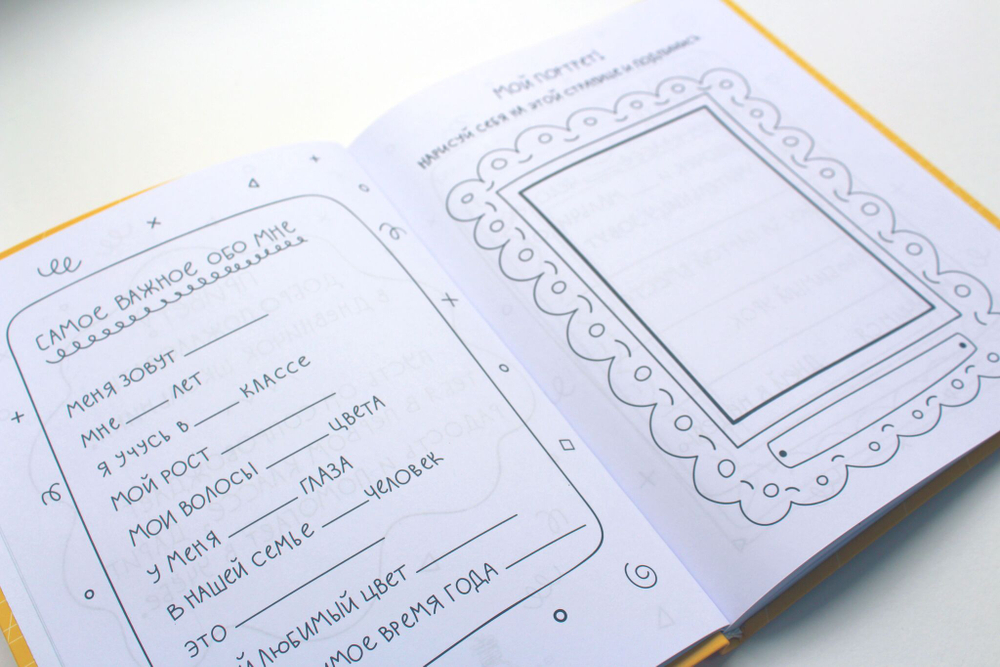 САМОЕ ВАЖНОЕ ОБО МНЕ
МЕНЯ ЗОВУТ
МНЕ ЛЕТ
Я УЧУСЬ В КЛАССЕ
МОЙ РОСТ
МОИ ВОЛОСЫ ЦВЕТА
У МЕНЯ ГЛАЗА
В НАШЕЙ СЕМЬЕ ЧЕЛОВЕК
ЭТО
Й ЛЮБИМЫЙ ЦВЕТ
ИМОЕ ВРЕМЯ ГОДА
МОЙ ПОРТРЕТ!
НАРИСУЙ СЕБЯ НА ЭТОЙ СТРАНИЦЕ И ПОДПИШИСЬ